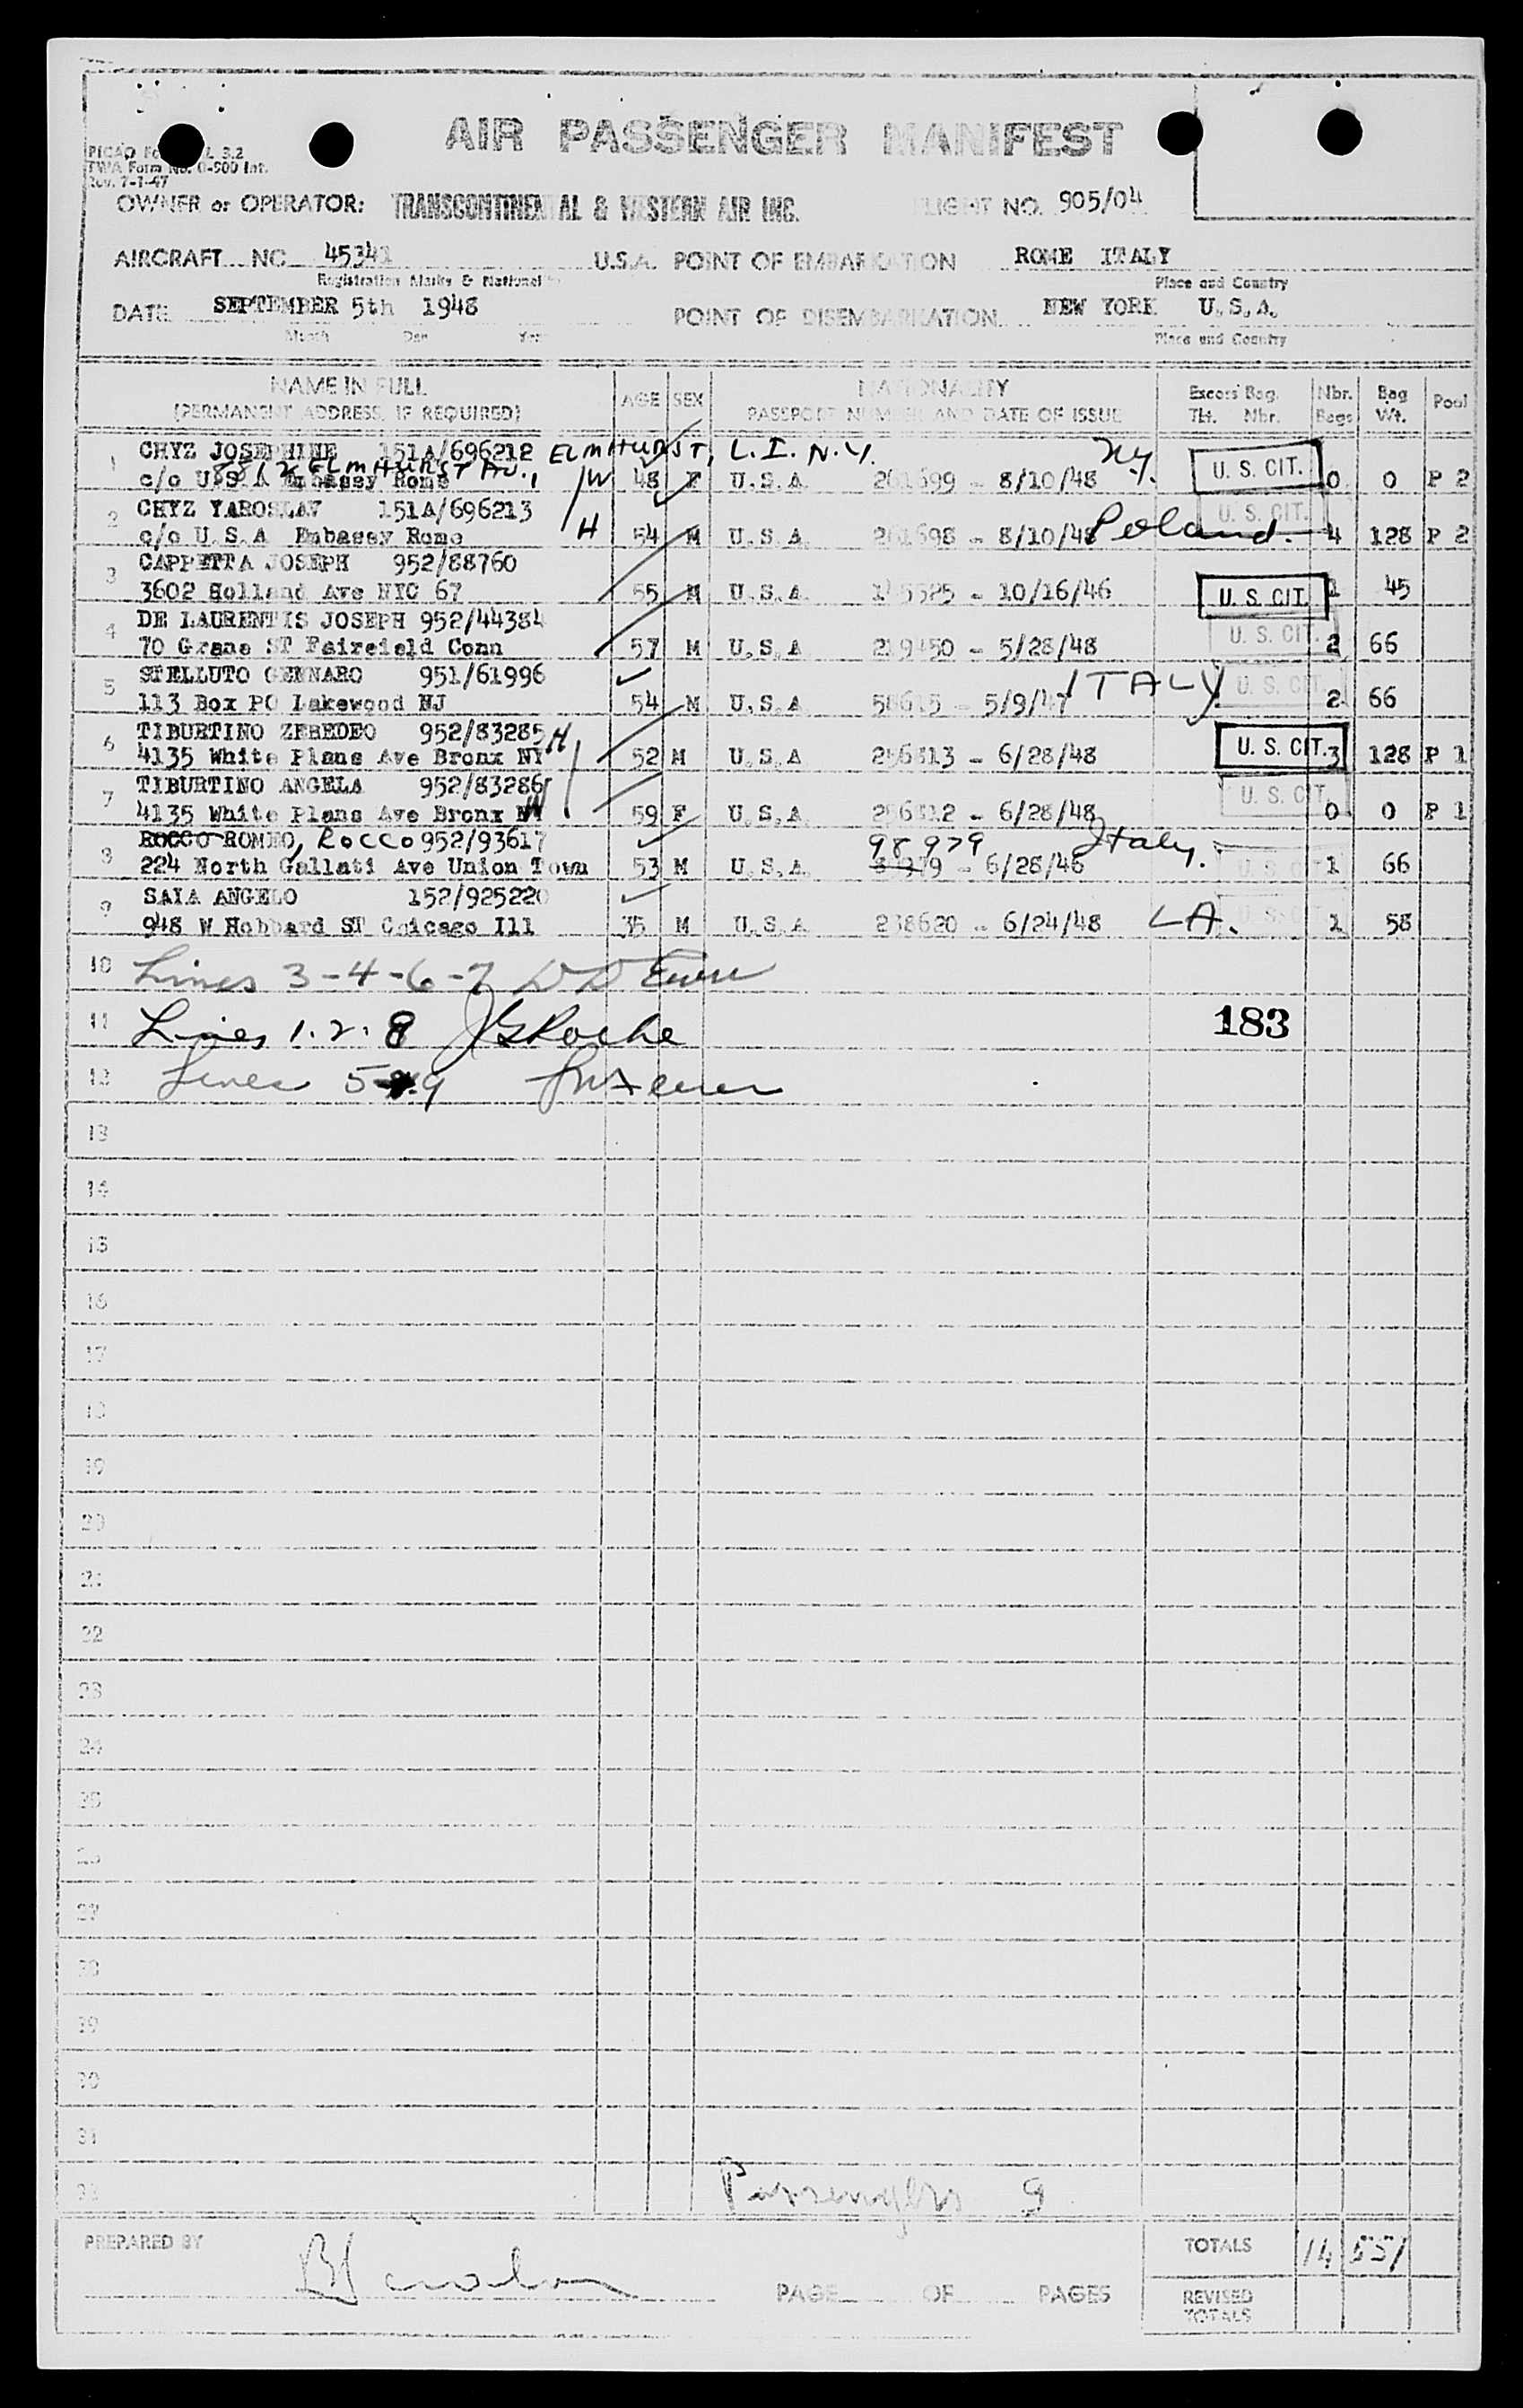 AIR PASSENGER MANIFEST
TWA Form No. 0-500 Int.
Rev. 7-1-47
OWNER or OPERATOR: TRANSCONTINENTAL & WESTERN AIR INC. FLIGHT NO. 905/04
AIRCRAFT NO 45341 U.S.A. POINT OF EMBARKATION ROME ITALY
Registration Marks & National Place and Country
DATE SEPTEMBER 5th 1948 POINT OF DISEMBARKATION NEW YORK U.S.A.
Month Day Year Place and Country
NAME IN FULL AGE SEX NATIONALITY Excess Bag. Nbr. Bag Pool
(PERMANENT ADDRESS, IF REQUIRED) PASSPORT NUMBER AND DATE OF ISSUE Tkt. Nbr. Bags Wt.
1 CHYZ JOSEPHINE 151A/696212 ELMHURST, L.I. N.Y. N.Y. U. S. CIT.
8812 ELMHURST AV.,
c/o U.S.A Embassy Rome W 48 F U.S.A. 261699 - 8/10/48 0 0 P 2
2 CHYZ YAROSLAV 151A/696213 U. S. CIT.
c/o U.S.A Embassy Rome H 54 M U.S.A. 261698 - 8/10/48 Poland. 4 128 P 2
3 CAPPETTA JOSEPH 952/88760
3602 Holland Ave NYC 67 55 M U.S.A. - 10/16/46 U. S. CIT. 1 45
4 DE LAURENTIS JOSEPH 952/44384 U. S. CIT.
70 Grane ST Faireield Conn 57 M U.S.A 219450 - 5/28/48 2 66
5 STELLUTO GENNARO 951/61996 ITALY U. S. CIT.
113 Box PO Lakewood NJ 54 M U.S.A 58615 - 5/9/47 2 66
6 TIBURTINO ZEBEDEO 952/83285 H U. S. CIT.
4135 White Plans Ave Bronx NY 52 M U.S.A 256813 - 6/28/48 3 128 P 1
7 TIBURTINO ANGELA 952/83286 W U. S. CIT.
4135 White Plans Ave Bronx NY 59 F U.S.A. 256812 - 6/28/48 0 0 P 1
8 ROCCO ROMEO, ROCCO 952/93617 98979 Italy.
224 North Gallati Ave Union Town 53 M U.S.A. - 6/28/46 U. S. CIT. 1 66
9 SAIA ANGELO 152/925220
948 W Hobbard ST Chicago Ill 35 M U.S.A 238620 - 6/24/48 LA. U. S. CIT. 1 58
10 Lines 3-4-6-7
11 Lines 1.2.8 JGRoche 183
12 Lines 5 9
13
14
15
16
17
18
19
20
21
22
23
24
25
26
27
28
29
30
31
32 Passengers 9
PREPARED BY TOTALS 14 551
PAGE OF PAGES REVISED
TOTALS